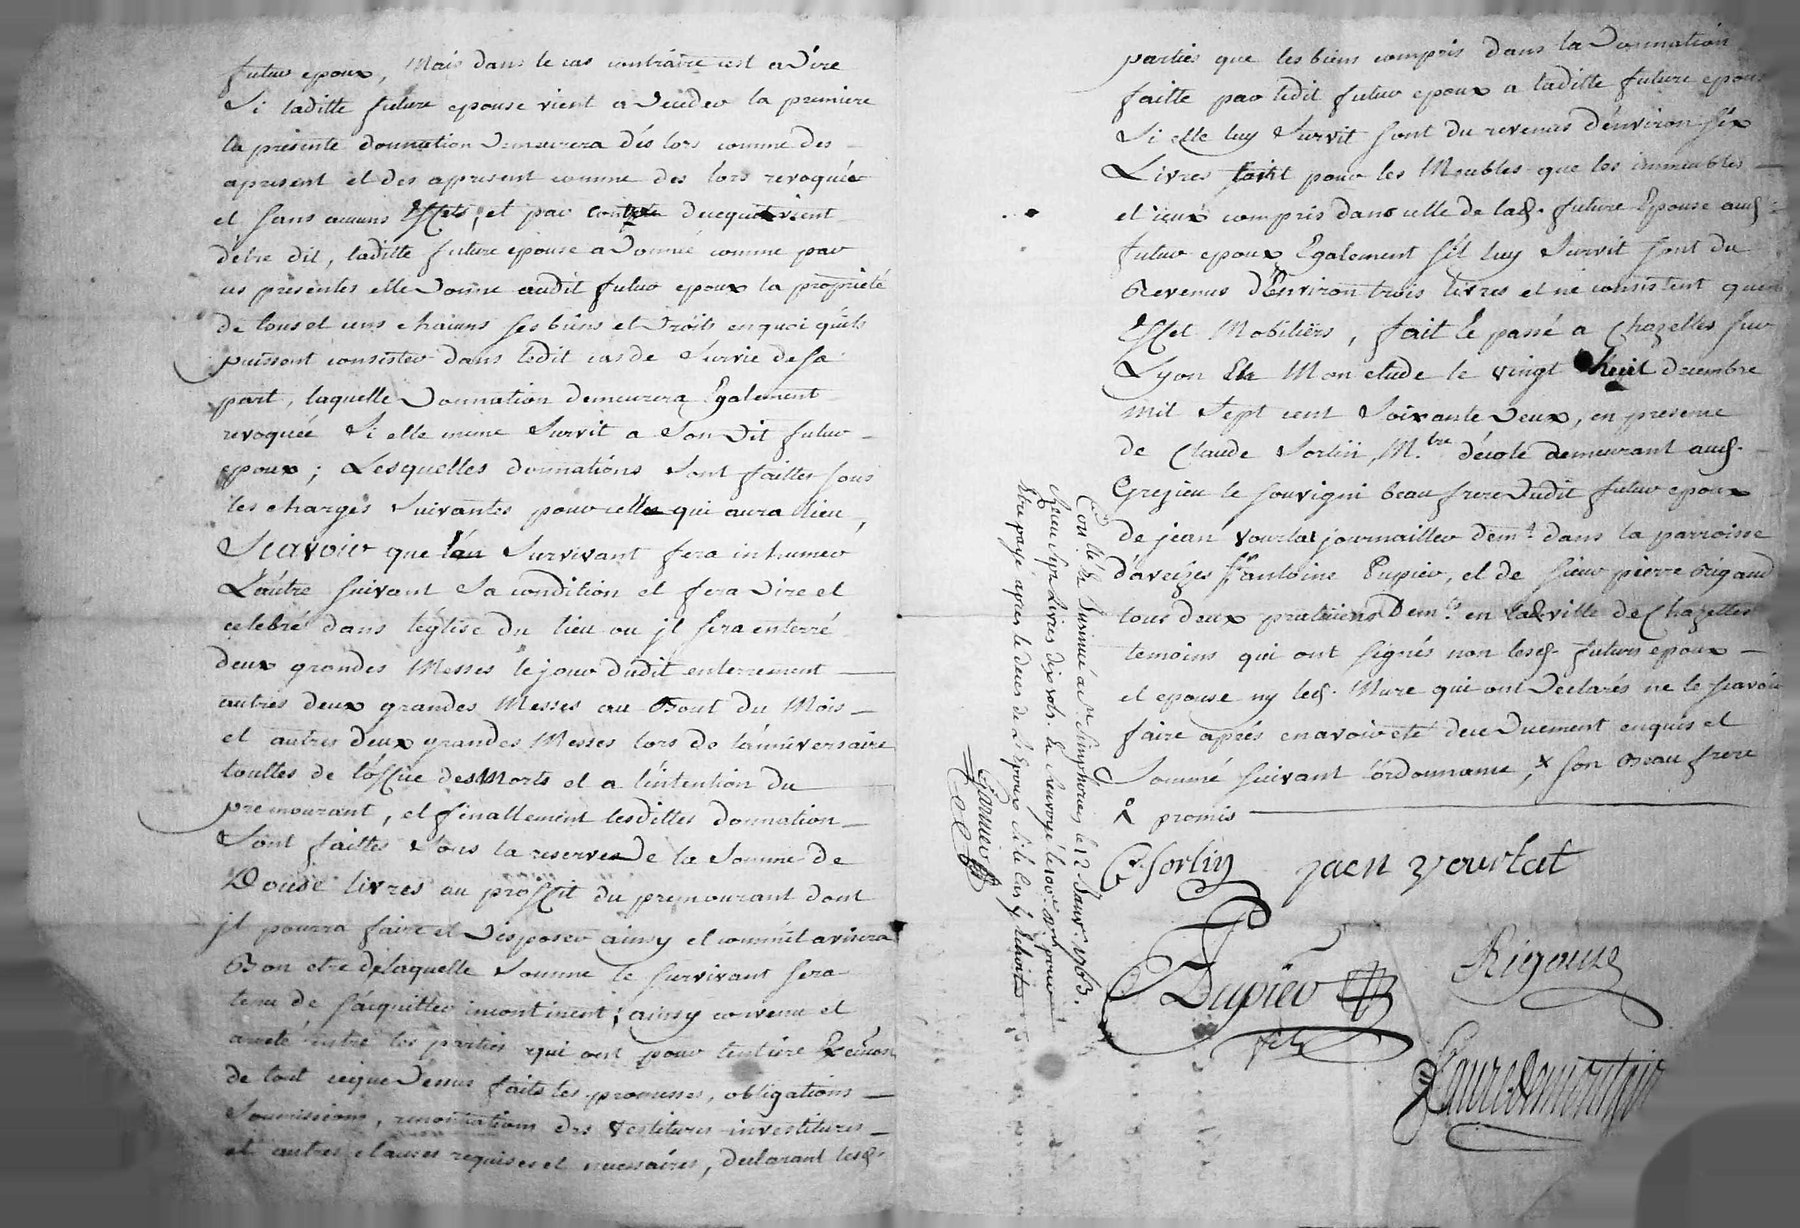 futur epoux, Mais dans le cas contraire cest a dire
Si laditte future epouse vient a deceder la premiere
la presente donnation demeurera dés lors comme des
apresent et des apresent comme des lors revoquée
et sans aucuns Effets, et par contre ducequi vient
détre dit, laditte future epouse a donné comme par
ces presentes elle donne audit futur epoux la proprieté
de tous et uns chacuns ses biens et droits en quoi quils
puissent consister dans ledit cas de Survie de sa
part, laquelle donnation demeurera Egalement
revoquée Si elle meme Survit a Son dit futur
epoux; Lesquelles donnations Sont faittes sous
les charges Suivantes pour celle qui aura lieu,
Scavoir que le Survivant fera inhumer
L'autre suivant Sa condition et fera dire et
celebré dans l'église du lieu ou jl sera enterré
deux grandes Messes le jour dudit enterrement
autres deux grandes Messes au Bout du Mois
et autres deux grandes Messes lors de l'anniversaire
touttes de l'office des Morts et a l'intention du
premourant, et finallement lesdittes donnation
Sont faittes Sous la reserve de la Somme de
Douse livres au proffit du premourant dont
jl pourra faire et disposer ainsy et comme il avisera
Bon etre de laquelle Somme le survivant sera
tenu de s'acquitter incontinent; ainsy convenu et
areté entre les parties qui ont pour lentiere Exe͞on
de tout ceque dessus faits les promesses, obligations
Soumissions, renontiations des vestitures investitures
et autres clauses requises et necessaires, declarant lesd.
parties que les biens compris dans la donnation
faitte par ledit futur epoux a laditte future epouse
Si elle luy Survit sont du revenus d'environ six
Livres tant pour les Meubles que les immeubles
et iceux compris dans celle de lad. future Epouse aud.
futur epoux Egalement s'il luy Survit sont du
Revenus d'Environ trois livres et ne consistent qu'en
Effet Mobiliers, fait et passé a Chazelles sur
Lyon En Mon etude le vingt huit decembre
mil Sept cent Soixante deux, en presence
de Claude Sorlin, M.tre décole demeurant aud.
Grezieu le souvigni beau frere dudit futur epoux
de jean vourlat journaillier dem.t dans la parroisse
d'aveizes S.r antoine Pupier, et de sieur pierre Rigaud
tous deux praticiens Dem.ts en lad. ville de Chazelles
temoins qui ont signés non lesd. futurs epoux
et epouse ny led. Mure qui ont declarés ne le scavoir
faire aprés en avoir eté deue duement enquis et
Sommé suivant l'ordonnance, x son Beau frere
& promis
C. Sorlin jaen vourlat
Pupier fils
Rigaud
Con.lé & Insinué a S.t Simphorien le 12 Janv.r 1763.
Reçu Sept Livres dix sols
etre payé apres le deces de L'Epoux Si le cas y Echoit
Garnier